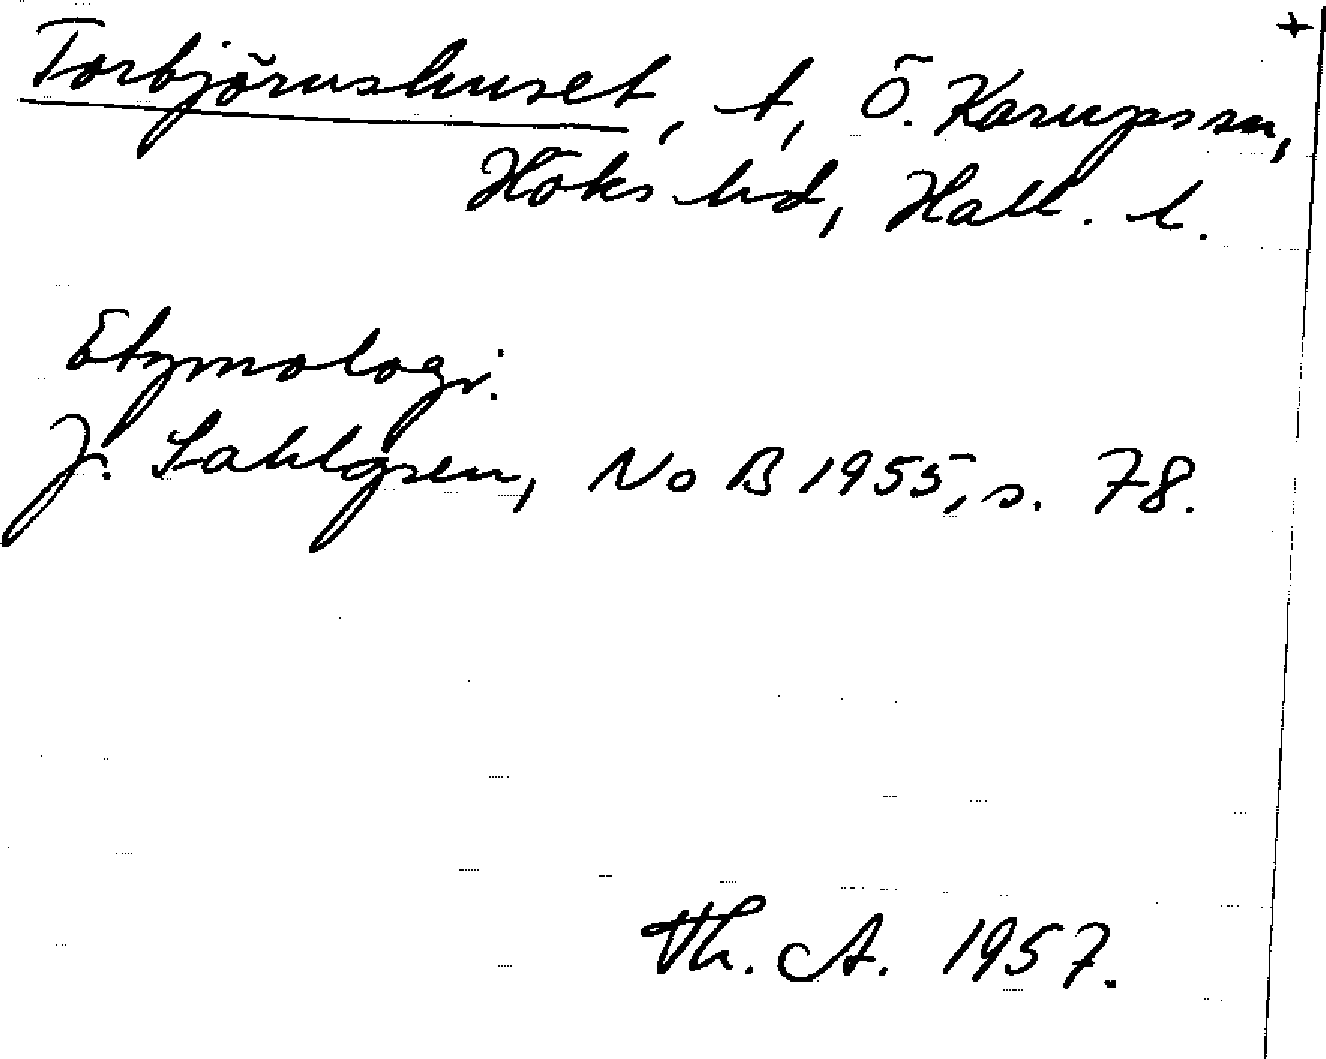 +
Torbjörnshuset, t, Ö. Karups sn,
Höks hd, Hall. l.
Etymologi:
J. Sahlgren, NoB 1955, s. 78.
Th. A. 1957.